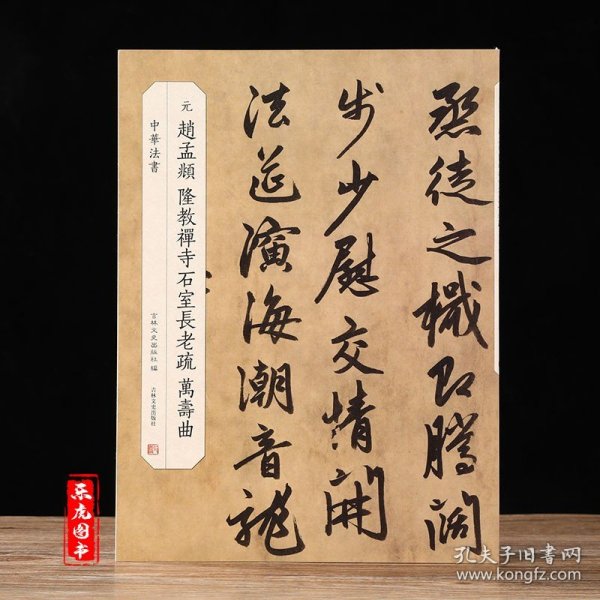 烝徒之檝即騰闊
步少慰交情開
法筵演海潮音龍
元 趙孟頫 隆教禪寺石室長老疏 萬壽曲
中華法書
吉林文史出版社 編
吉林文史出版社
乐虎图书
孔夫子旧书网
www.kongfz.com